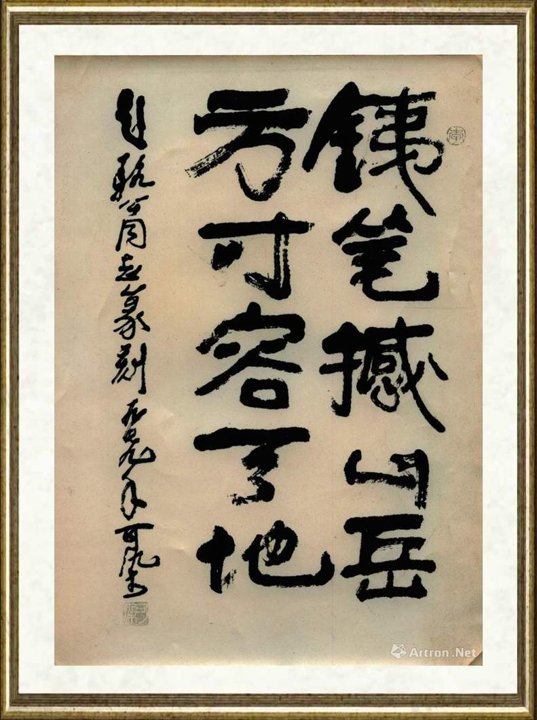 銕笔撼山岳
方寸容天地
同志篆刻 年 可染
Artron.Net